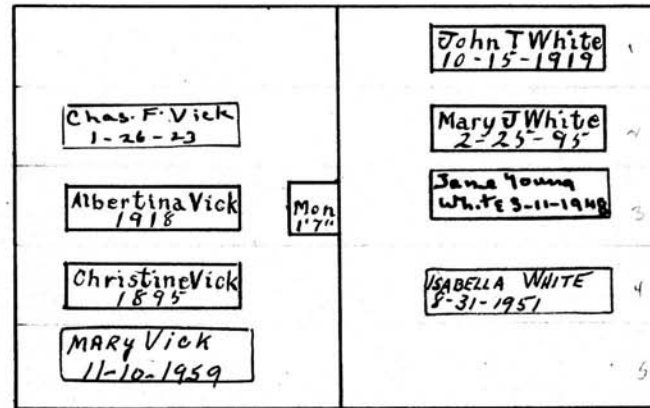 Chas. F. Vick
1-26-23
Albertina Vick
1918
Christine Vick
1895
MARY VICK
11-10-1959
Mon
1'7"
John T White
10-15-1919
1
Mary J White
2-25-95
2
Jane Young
White 3-11-1948
3
ISABELLA WHITE
8-31-1951
4
5